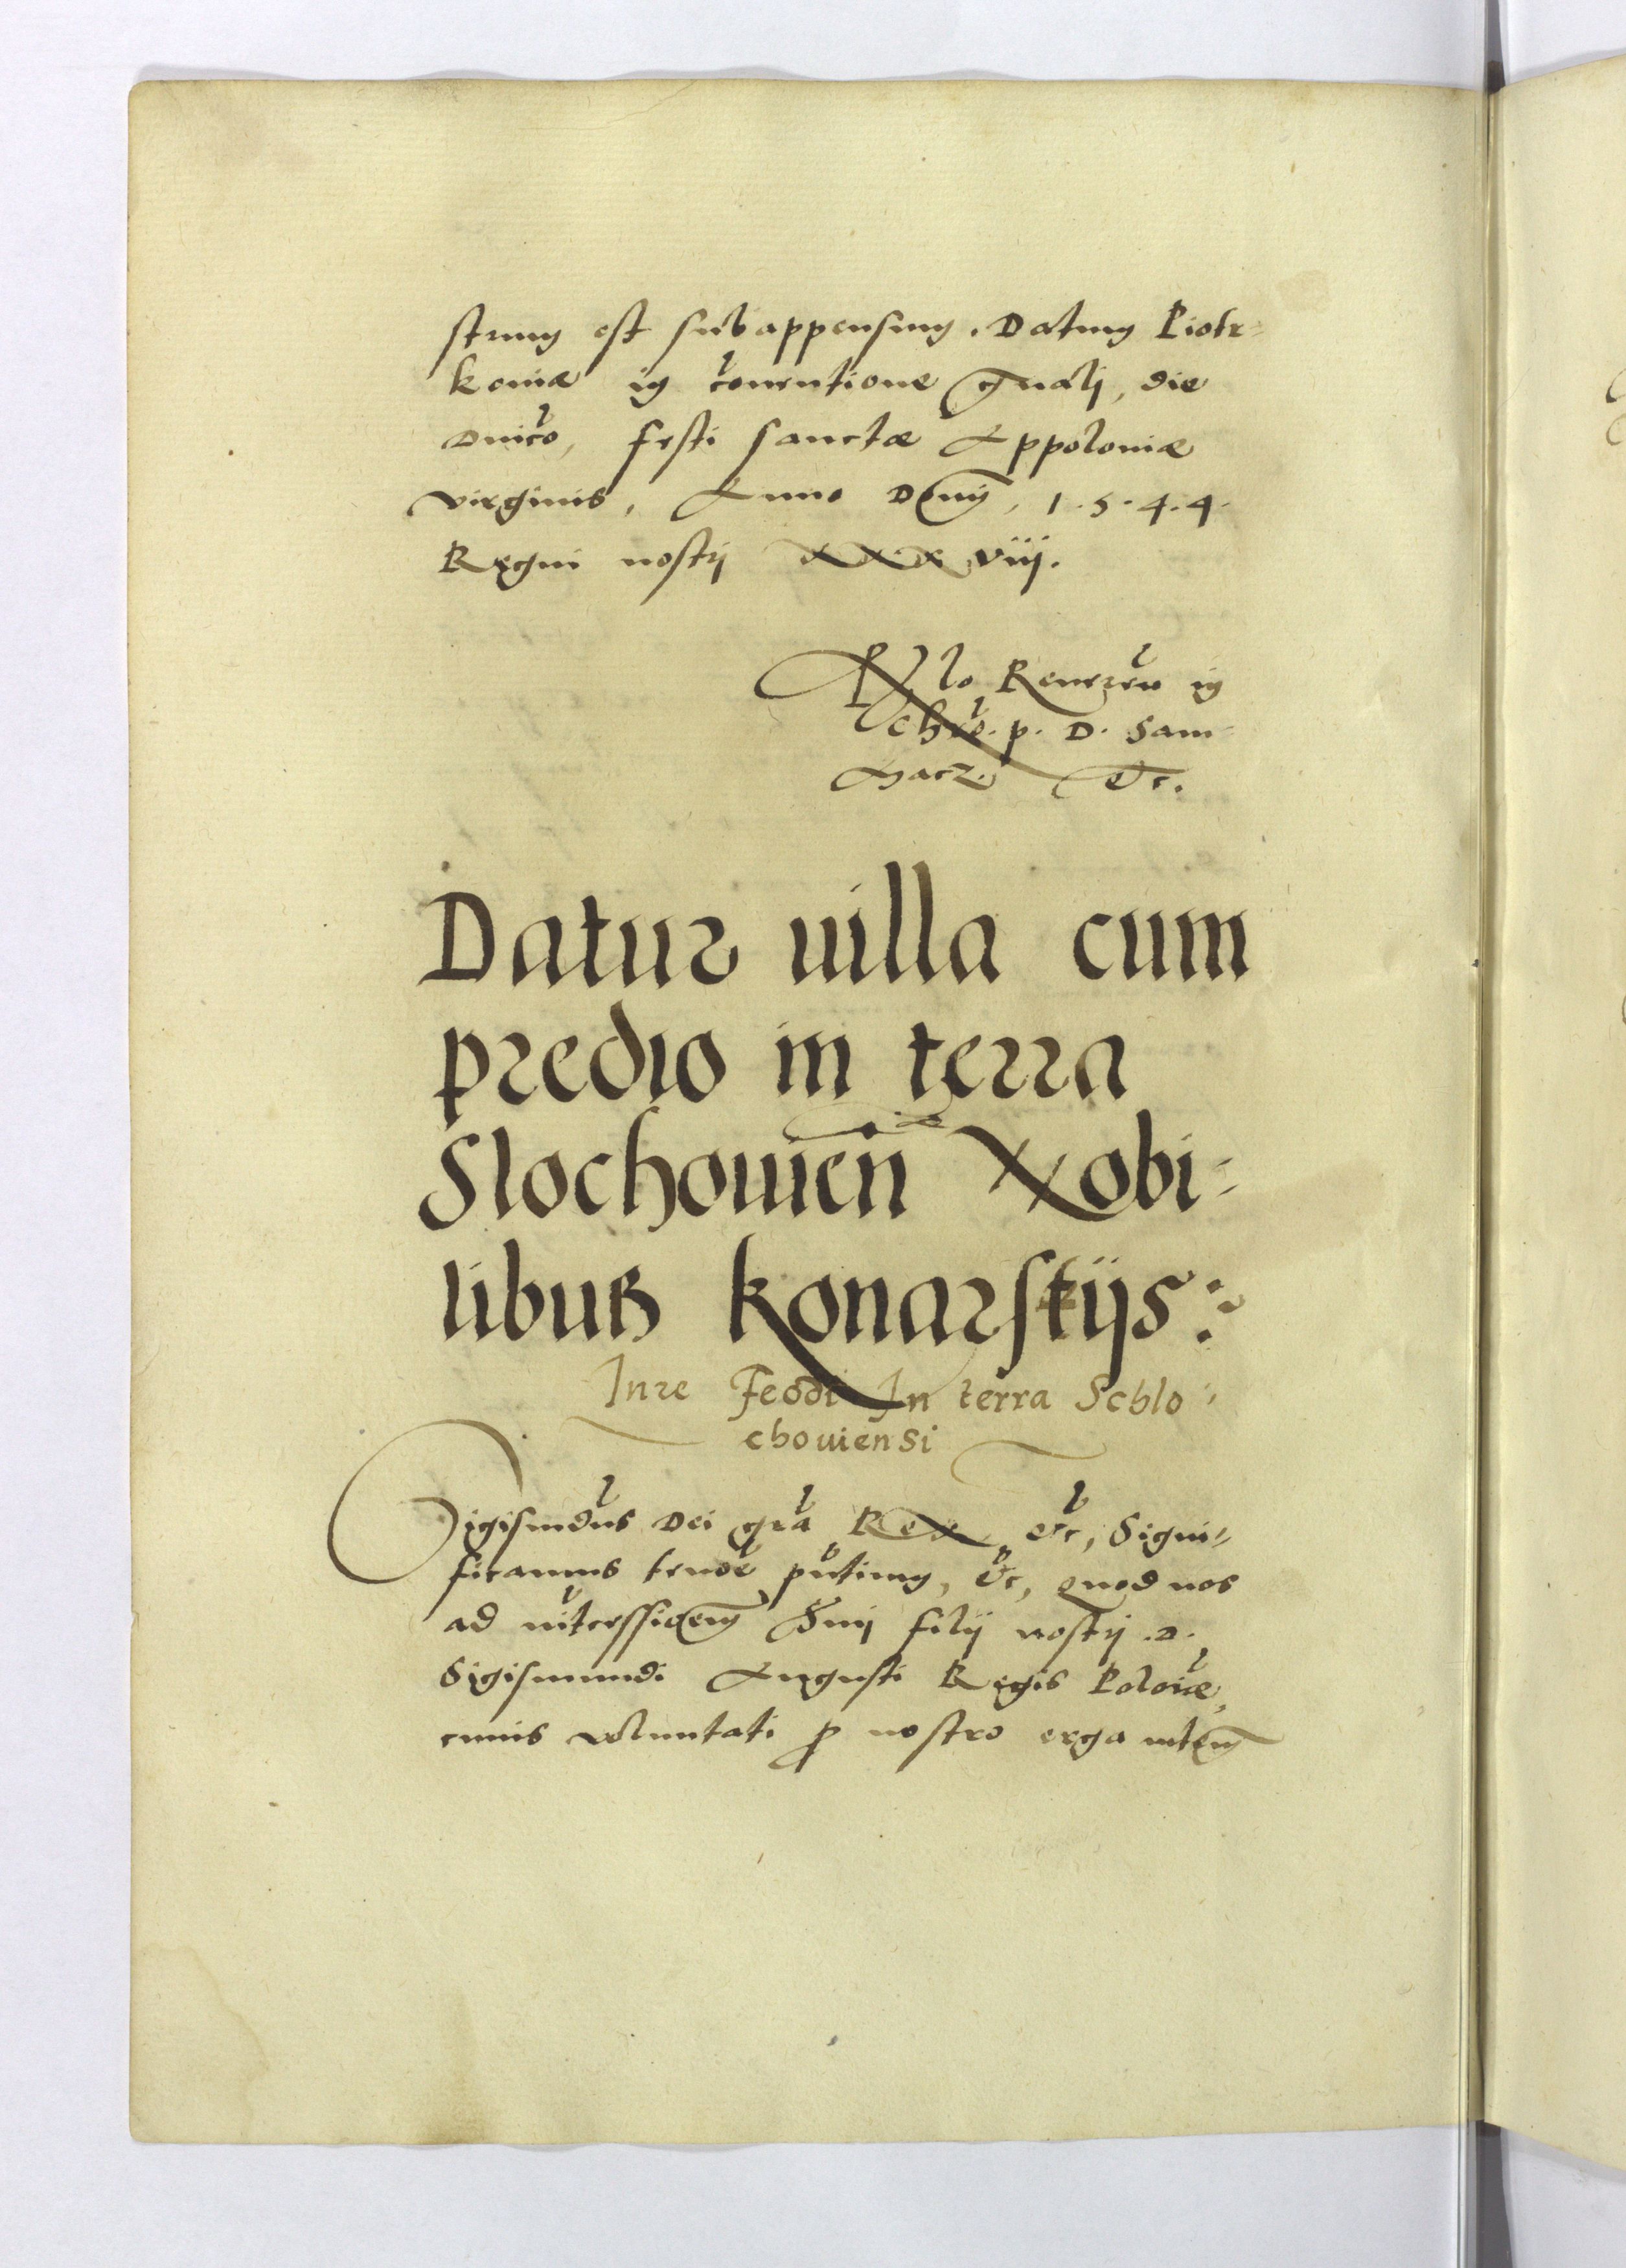 strum est subappensum. Datum Piotr-
koviæ in conventione gnali, die
Dnico, festi sanctæ Appoloniæ
virginis, Anno Domi, 1.5.4.4.
Regni nostri XXXviij.
Rlo Reveren in
Chro. p. D. Sam
Macz. etc.
Datur uilla cum
predio in terra
Slochouien Nobi-
libus Konarstijs:
Jure Feodi In terra Schlo-
chouiensi
Sigismdus Dei gra Rex etc, Signi-
ficamus tenore pntium, etc, quod nos
ad intercessionem Smi filij nostri .D.
Sigismundi Augusti Regis Poloniæ,
cuius voluntati p nostro erga